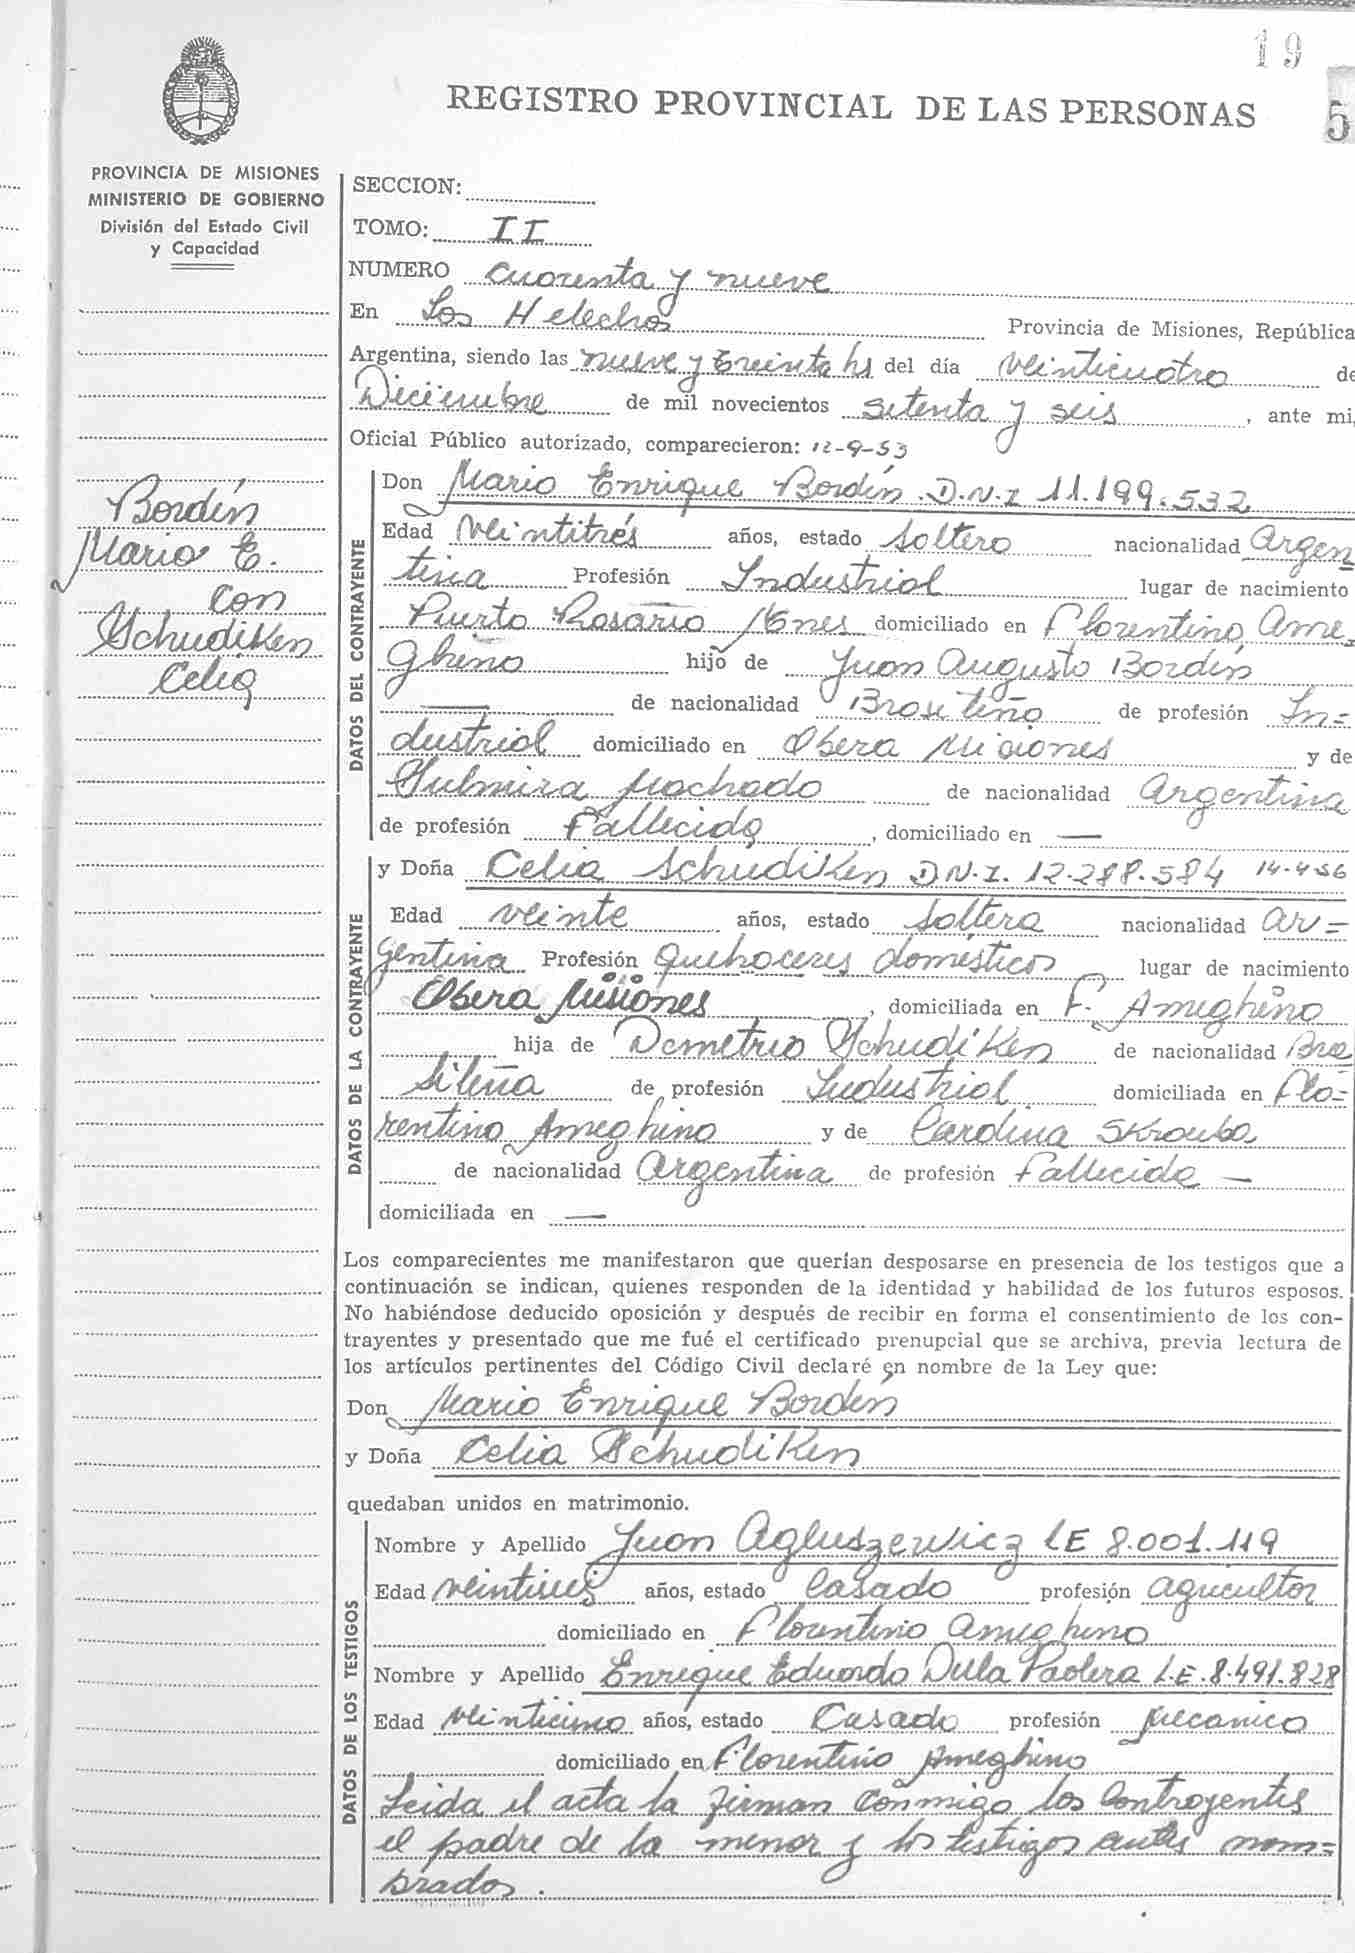 19
5
REGISTRO PROVINCIAL DE LAS PERSONAS
PROVINCIA DE MISIONES
MINISTERIO DE GOBIERNO
División del Estado Civil
y Capacidad
Bordín
Mario E.
con
Schudiken
Celia
SECCION:
TOMO: II
NUMERO cuarenta y nueve
En Los Helechos Provincia de Misiones, República
Argentina, siendo las nueve y treinta hs del día veinticuatro de
Diciembre de mil novecientos setenta y seis, ante mi,
Oficial Público autorizado, comparecieron: 12-9-53
DATOS DEL CONTRAYENTE
Don Mario Enrique Bordín D.N.I 11.199.532
Edad veintitrés años, estado soltero nacionalidad Argen
tina Profesión Industrial lugar de nacimiento
Puerto Rosario Mnes domiciliado en Florentino Ame
ghino hijo de Juan Augusto Bordín
de nacionalidad Brasileño de profesión In=
dustrial domiciliado en Obera Misiones y de
Machado de nacionalidad Argentina
de profesión Fallecida, domiciliado en —
DATOS DE LA CONTRAYENTE
y Doña Celia Schudiken D.N.I. 12.288.584 14-4-56
Edad veinte años, estado soltera nacionalidad ar=
gentina Profesión Quehaceres domésticos lugar de nacimiento
Obera Misiones, domiciliada en F. Ameghino
hija de Demetrio Schudiken de nacionalidad Bra
sileña de profesión Industrial domiciliada en Flo=
rentino Ameghino y de Carolina
de nacionalidad Argentina de profesión Fallecida —
domiciliada en —
Los comparecientes me manifestaron que querían desposarse en presencia de los testigos que a
continuación se indican, quienes responden de la identidad y habilidad de los futuros esposos.
No habiéndose deducido oposición y después de recibir en forma el consentimiento de los con-
trayentes y presentado que me fué el certificado prenupcial que se archiva, previa lectura de
los artículos pertinentes del Código Civil declaré en nombre de la Ley que:
Don Mario Enrique Bordín
y Doña Celia Schudiken
quedaban unidos en matrimonio.
DATOS DE LOS TESTIGOS
Nombre y Apellido Juan Agluszewicz LE 8.001.119
Edad años, estado Casado profesión agricultor
domiciliado en Florentino Ameghino
Nombre y Apellido Enrique Eduardo Della Paolera L.E. 8.491.828
Edad veinticinco años, estado Casado profesión Mecanico
domiciliado en Florentino Ameghino
Leida el acta la firman conmigo los Contrayentes
el padre de la menor y los testigos antes nom=
brados.